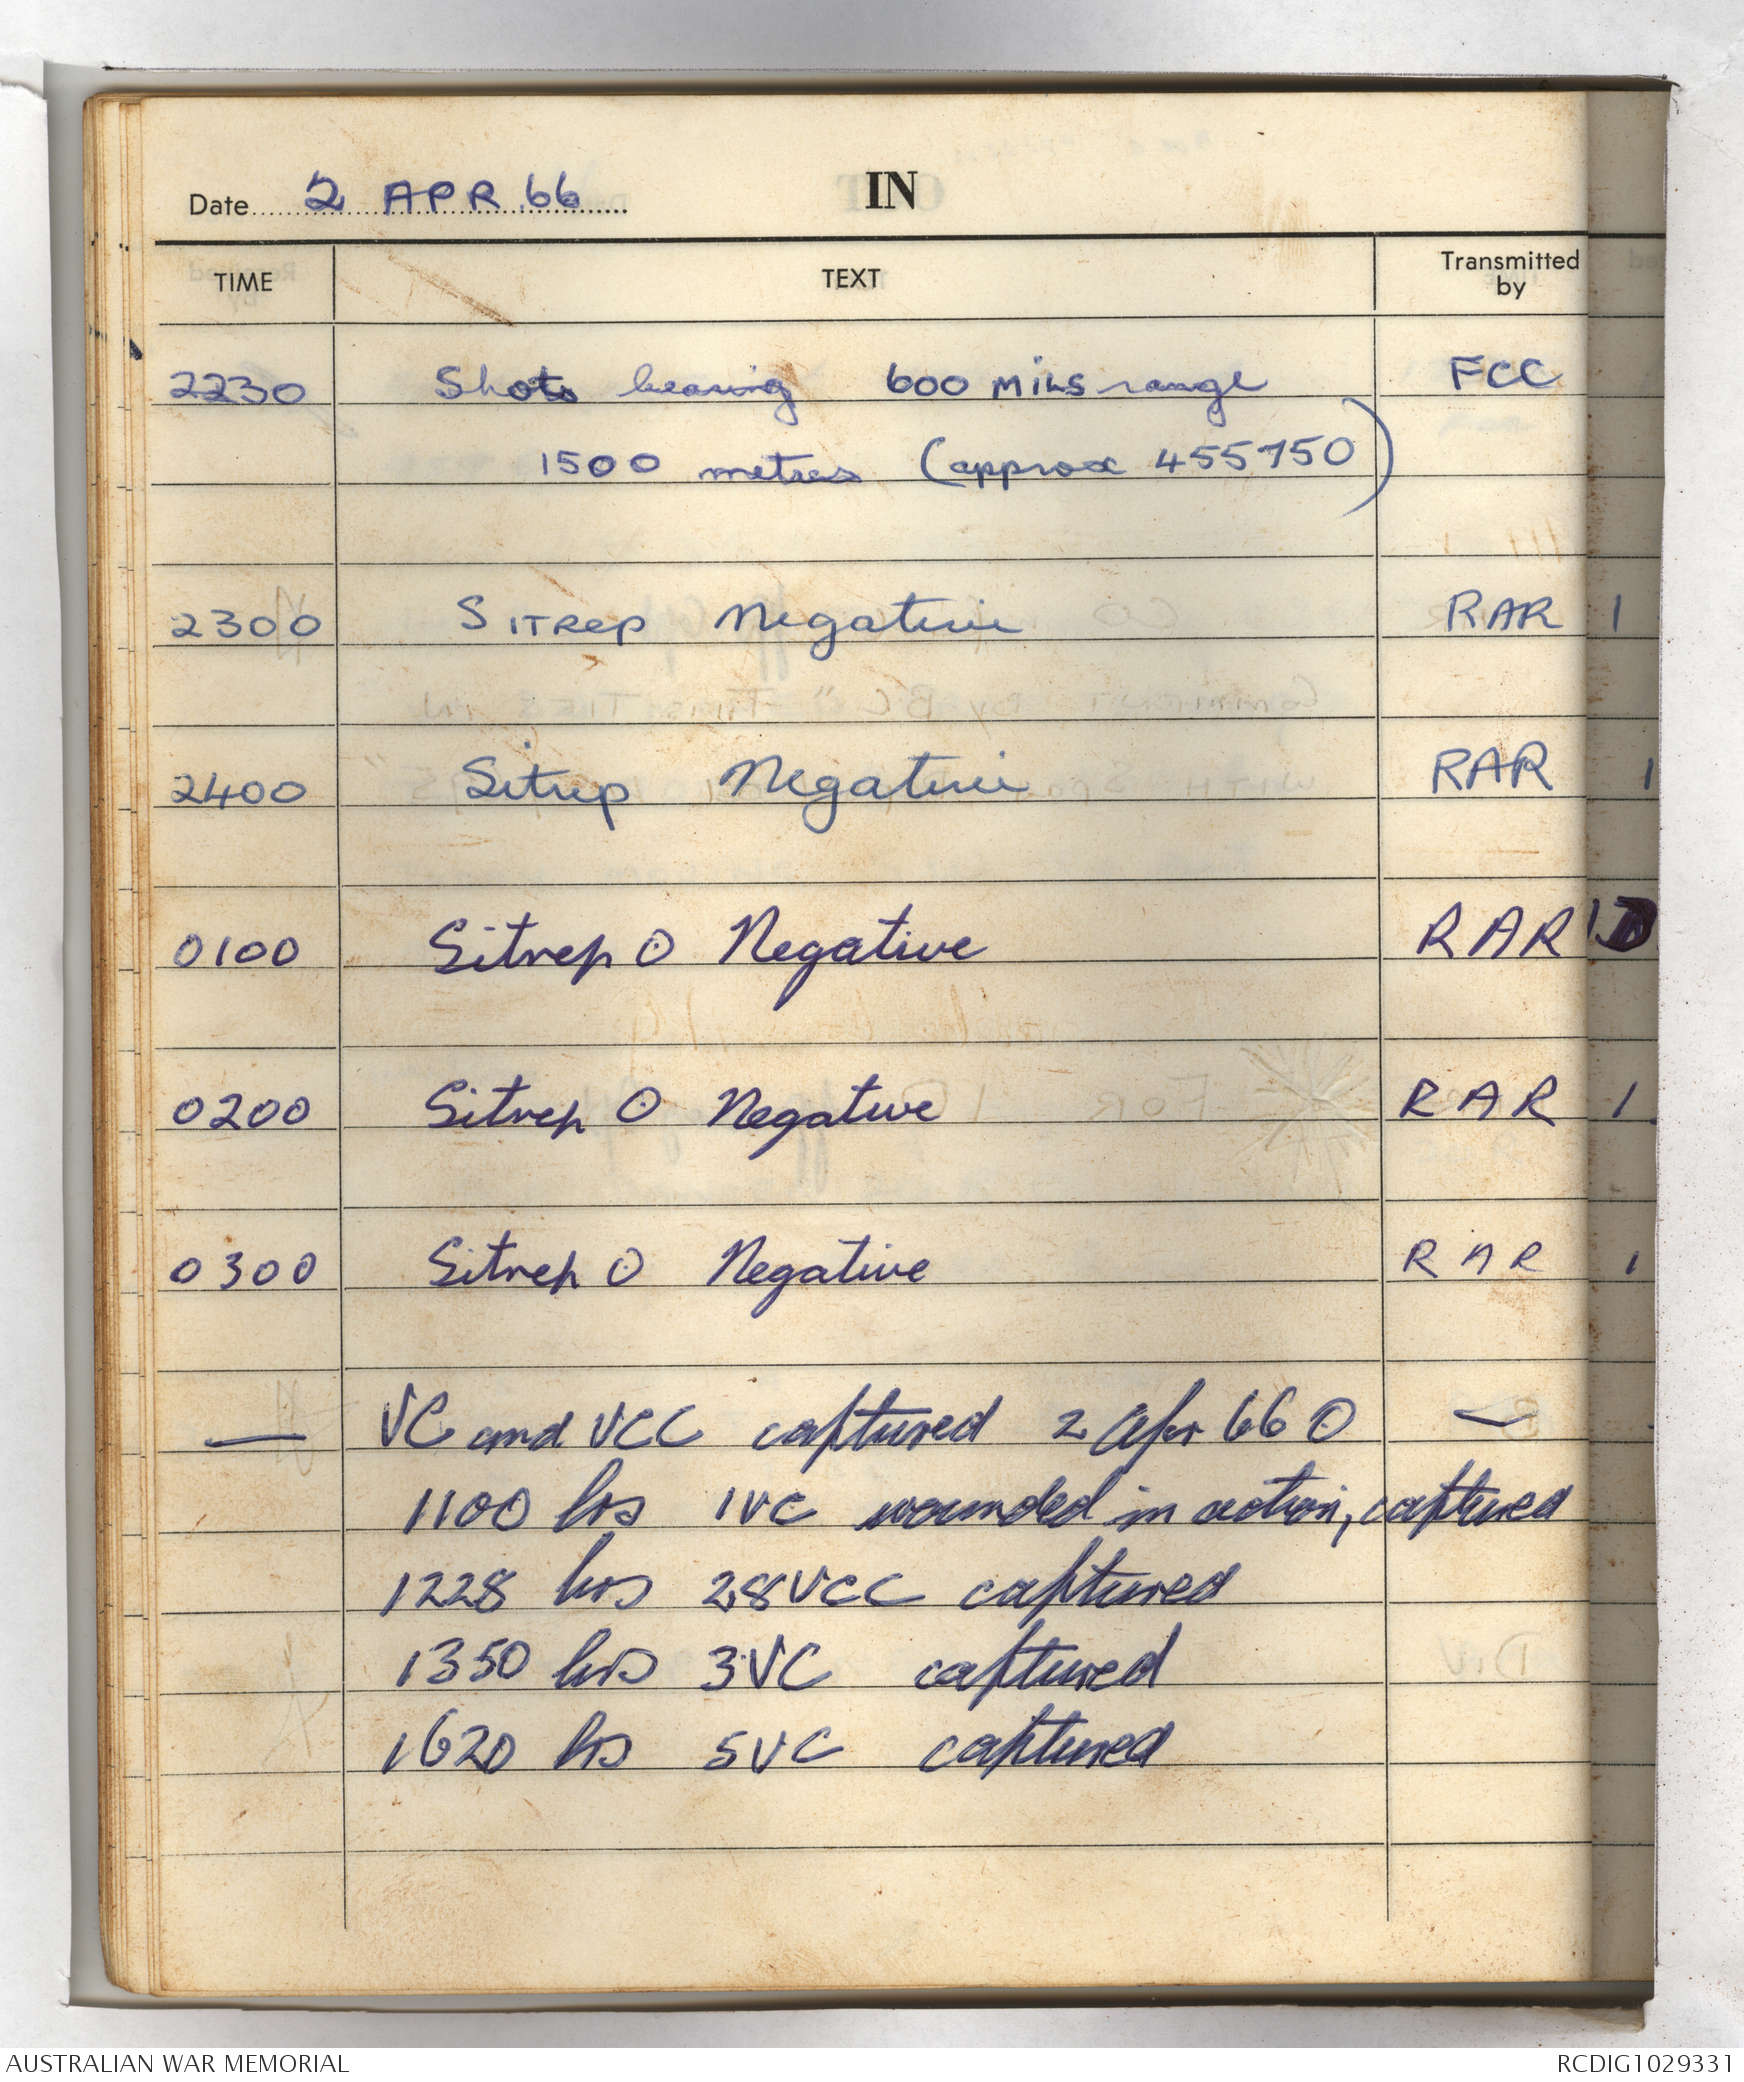 Date 2 APR 66 IN
TIME TEXT Transmitted by
2230 Shots bearing 600 MILS range FCC
1500 metres (approx 455750)
2300 SITREP Negative RAR 1
2400 Sitrep Negative RAR 1
0100 Sitrep O Negative RAR 1
0200 Sitrep O Negative RAR 1
0300 Sitrep O Negative RAR 1
— VC and VCC captured 2 Apr 66 O —
1100 hrs 1VC wounded in action, captured
1228 hrs 28VCC captured
1350 hrs 3VC captured
1620 hrs 5VC captured
AUSTRALIAN WAR MEMORIAL RCDIG1029331